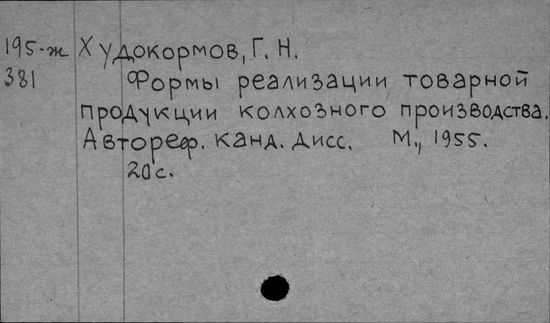 195-ж Худокормов, Г. Н.
381 Формы реализации товарной
продукции колхозного производства.
Автореф. канд. дисс. М., 1955.
20 с.